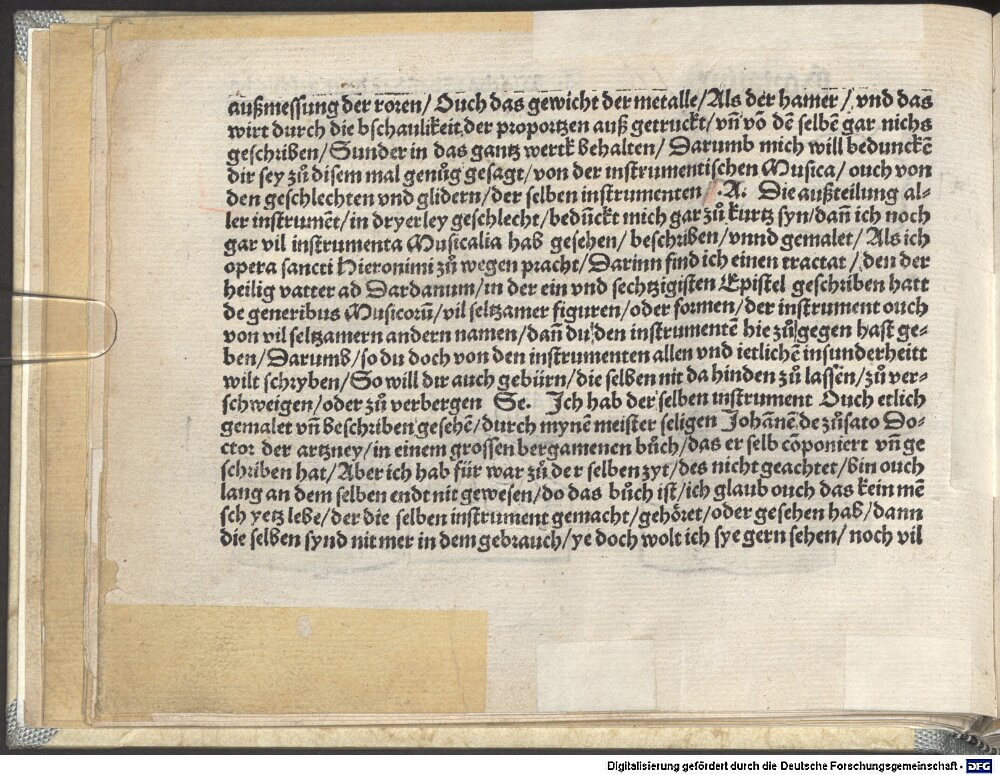 außmessung der roren/ Ouch das gewicht der metalle/Als der hamer/ vnd das
wirt durch die bschaulikeit der proportzen auß getruckt/vñ võ dẽ selbẽ gar nichs
geschriben/Sunder in das gantz wertk behalten/ Darumb mich will beduncke̅
dir sey zů disem mal genůg gesagt/von der instrumentischen Musica/ ouch von
den geschlechten vnd glidern/der selben instrumenten/ .A. Die außteilung al⸗
ler instrumẽt/in dryerley geschlecht/bedůckt mich gar zů kurtz syn/dañ ich noch
gar vil instrumenta Musicalia hab gesehen/ beschriben/vnnd gemalet/ Als ich
opera sancti Hieronimi zů wegen pracht/Darinn find ich einen tractat/ den der
heilig vatter ad Dardanum/in der ein vnd sechtzigisten Epistel geschriben hatt
de generibus Musicorũ/vil seltzamer figuren/oder formen/der instrument ouch
von vil seltzamern andern namen/dañ du den instrumentẽ hie zů gegen hast ge⸗
ben/Darumb/so du doch von den instrumenten allen vnd ietlichẽ insunderheitt
wilt schryben/So will dir auch gebürn/die selben nit da hinden zů lassẽn/zů ver⸗
schweigen/oder zů verbergen Se. Ich hab der selben instrument Ouch etlich
gemalet vñ beschriben gesehẽ/durch mynẽ meister seligen Johãnẽ de zůsato Do⸗
ctor der artzney/in einem grossen bergamenen bůch/das er selb cõponiert vñ ge
schriben hat/Aber ich hab für war zů der selben zyt/des nicht geachtet/bin ouch
lang an dem selben endt nit gewesen/do das bůch ist/ich glaub ouch das kein mẽ
sch yetz lebe/der die selben instrument gemacht/gehöret/oder gesehen hab/dann
die selben synd nit mer in dem gebrauch/ye doch wolt ich sye gern sehen/ noch vil
Digitalisierung gefördert durch die Deutsche Forschungsgemeinschaft - DFG